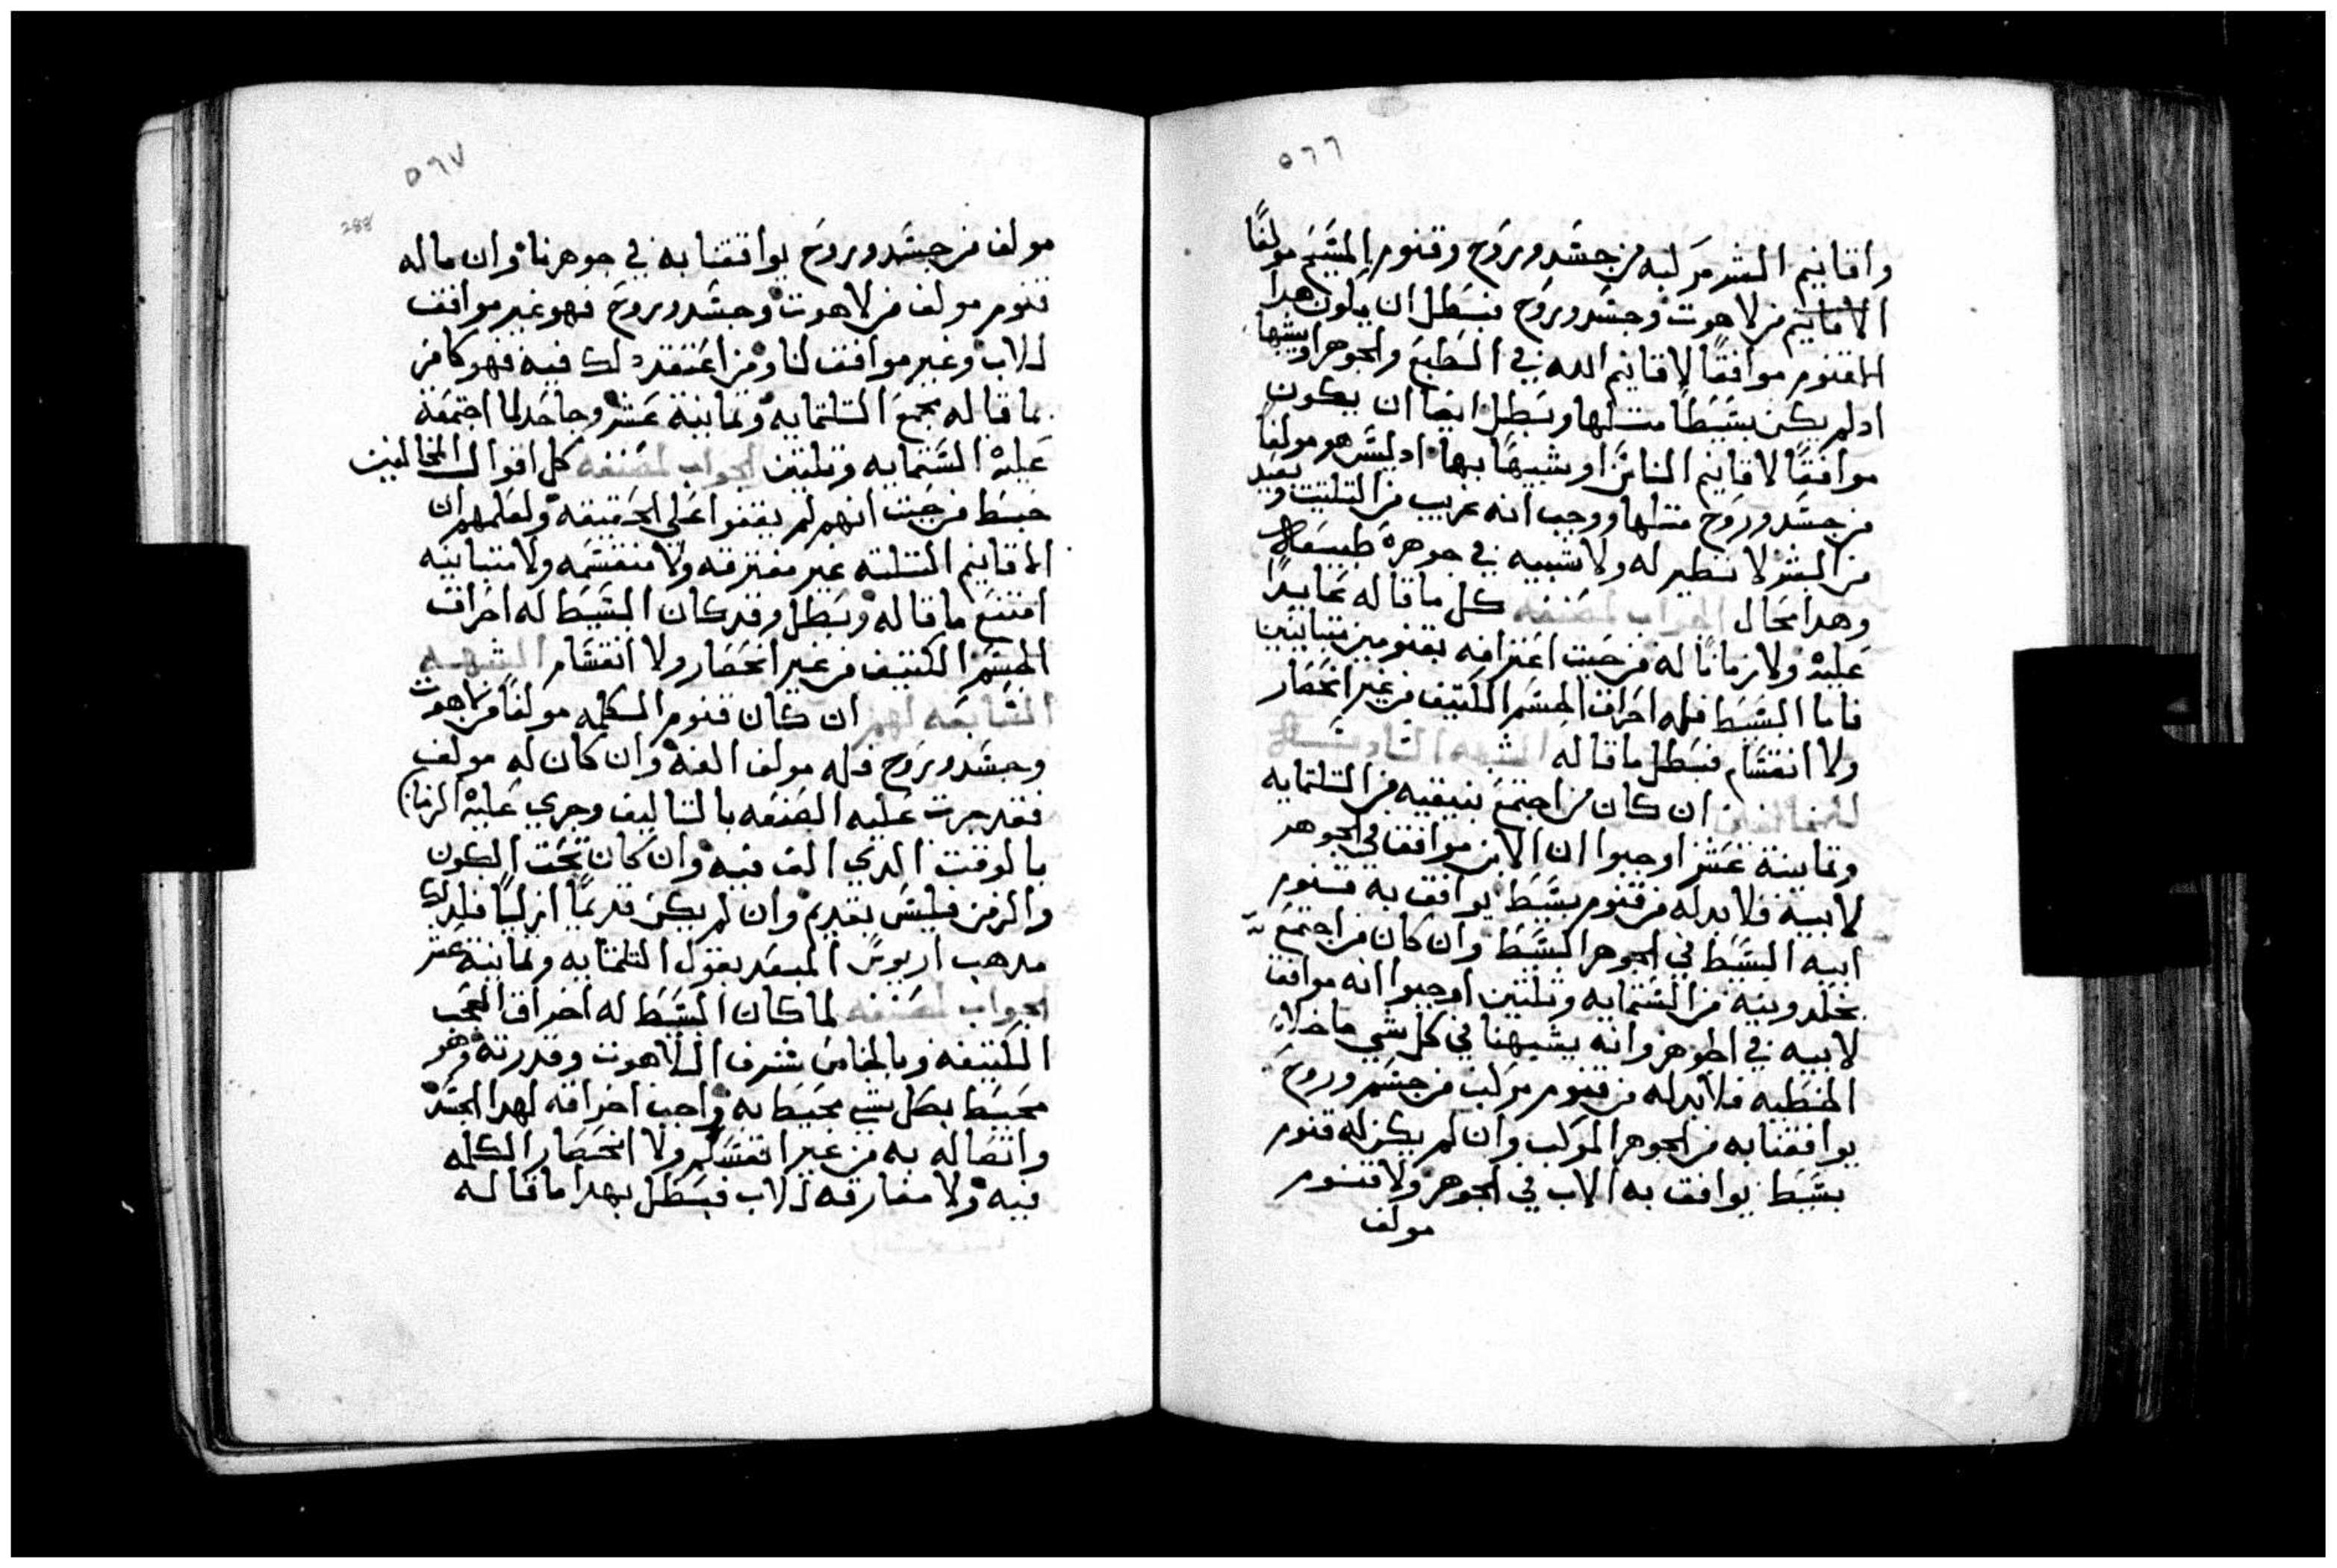 ٥٦٦
واقانيم البشر مركبه من جسد وروح وقنوم المسيح مولفًا
الاقانيم من لاهوت وجسد وروح فبطل ان يكون هدا
القنوم موافقًا لاقانيم الله في الطبع والجوهر او يشبها
ادلم يكن بسيطًا متلها وبطل ايضا ان يكون
موافقًا لاقانيم الناس او شبيهًا بها ادليس هو مولفًا
من جسد وروح متلها ووجب انه غريب من التليت وبعيد
من البشر لا نظير له ولا شبيه في جوهره طبيعة
وهدا محال الجواب لمصنفه كل ما قاله عايدًا
عليه ولا زمانًا له من حيت اعترافه بقنومين متباينين
فاما البسيط فله اخراق الجسم الكتيف من غير انحصار
ولا انقسام فبطل ما قاله الشبهه السادسه
ان كان من اجتمع بنيقيه من التلتمايه
وتمانية عشر اوجبوا ان الابن موافق في الجوهر
لابيه فلا بد له من قنوم بسيط يوافق به قنوم
ابيه البسيط في الجوهر البسيط وان كان من اجتمع
بخلدونيه من الستمايه وتلتين اوجبوا انه موافقا
لابيه في الجوهر وانه يشبهنا في كل شي ما خلا
الخطيه فلا بد له من قنوم مركب من جسم وروح
يوافقنا به من الجوهر المركب وان لم يكن له قنوم
بسيط يوافق به الاب في الجوهر ولا قنوم
مولف
٥٦٧
288
مولف من جسد وروح يوافقنا به في جوهرنا وان ماله
قنوم مولف من لاهوت وجسد وروح فهو غير موافق
للاب وغير موافق لنا ومن اعتقد دلك فيه فهو كافر
بما قاله مجمع التلتمايه وتمانية عشر وجاحد لما اجتمعة
عليه الستمايه وتلتين الجواب لمصنفه كل اقوال المخالفين
خبط من حيت انهم لم يقفوا على الحقيقه ولعلمهم ان
الاقانيم التلته غير مفترقه ولا منقسمه ولا متباينه
امتنع ما قاله وبطل وقد كان البسيط له اخراق
الجسم الكتيف من غير انحصار ولا انقسام الشبهه
السابعه لهم ان كان قنوم الكلمه مولفًا من لاهوت
وجسد وروح فله مولف الفه وان كان له مولف
فقد جرت عليه الصنعه بالتاليف وجري عليه الزمان
بالوقت الدي الف فيه وان كان تحت الكون
والزمن فليس بقديم وان لم يكن قديمًا ازليًا فلدلك
مدهب اريوس المبعد بقول التلتمايه وتمانية عشر
الجواب لمصنفه لما كان البسيط له اخراق الحجب
الكتيفه وبالخاص شرف اللاهوت وقدرته وهو
محيط بكل شي محيط به واجب اخراقه لهدا الجسد
واتصاله به من غير انقسام ولا انحصار الكلمه
فيه ولا مفارقه للاب فبطل بهدا ما قاله